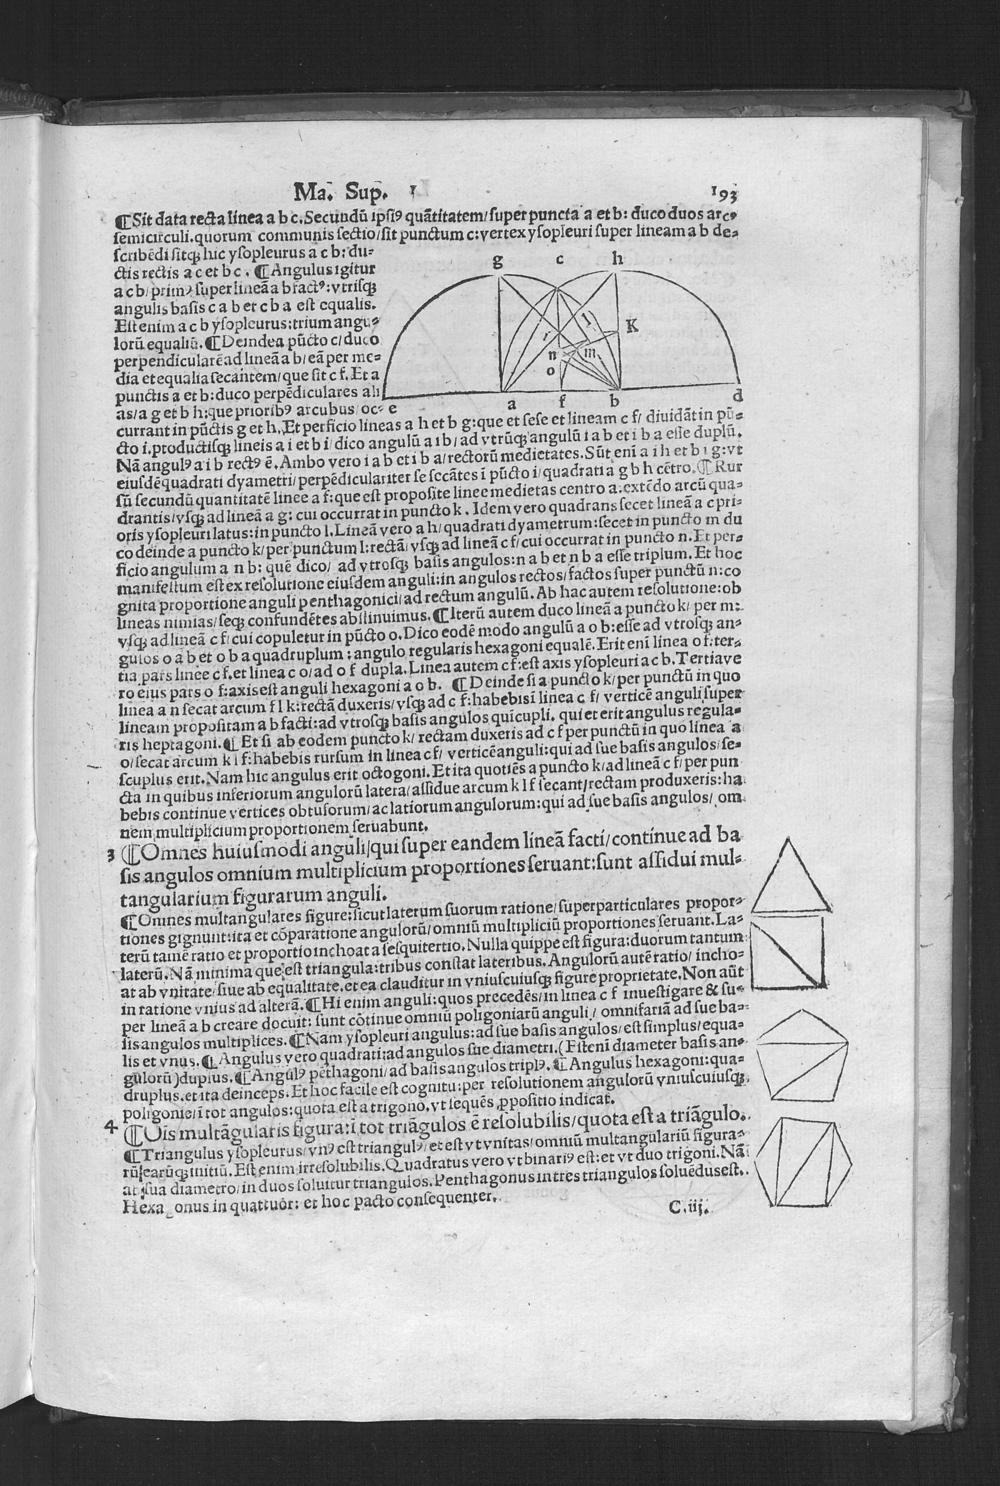 Ma. Sup. 1
193
¶Sit data recta linea a b c. Secundū ipsiꝰ quātitatem/ super puncta a et b: duco duos arcꝰ
semicirculi. quorum communis sectio/ sit punctum c: vertex ysopleuri super lineam a b de-
scribēdi sitqꝫ hic ysopleurus a c b: du-
ctis rectis a c et b c. ¶Angulus igitur
a c b/ primꝰ super lineā a b factꝰ: vtrisqꝫ
angulis basis c a b et c b a est equalis.
Est enim a c b ysopleurus: trium angu-
lorū equaliū. ¶Deinde a pūcto c/ duco
perpendicularē ad lineā a b/ eā per me-
dia et equalia secantem/ que sit c f. Et a
punctis a et b: duco perpēdiculares ali
as/ a g et b h: que prioribꝰ arcubus/ oc-
currant in pūctis g et h. Et perficio lineas a h et b g: que et sese et lineam c f/ diuidāt in pū-
cto i. productisqꝫ lineis a i et b i/ dico angulū a i b/ ad vtrūqꝫ angulū i a b et i b a esse duplū.
Nā angulꝰ a i b rectꝰ ē. Ambo vero i a b et i b a/ rectorū medietates. Sūt enī a i h et b i g: vt
eiusdē quadrati dyametri/ perpēdiculariter se secātes ī pūcto i/ quadrati a g b h cētro. ¶Rur
sū secundū quantitatē linee a f: que est proposite linee medietas centro a: extēdo arcū qua-
drantis/ vsqꝫ ad lineā a g: cui occurrat in puncto k. Idem vero quadrans secet lineā a c pri-
oris ysopleuri latus: in puncto l. Lineā vero a h/ quadrati dyametrum: secet in puncto m du
co deinde a puncto k/ per punctum l: rectā/ vsqꝫ ad lineā c f/ cui occurrat in puncto n. Et per-
ficio angulum a n b: quē dico/ ad vtrosqꝫ basis angulos: n a b et n b a esse triplum. Et hoc
manifestum est ex resolutione eiusdem anguli: in angulos rectos/ factos super punctū n: co
gnita proportione anguli penthagonici/ ad rectum angulū. Ab hac autem resolutione: ob
lineas nimias/ seqꝫ confundētes abstinuimus. ¶Iterū autem duco lineā a puncto k/ per m:
vsqꝫ ad lineā c f/ cui copuletur in pūcto o. Dico eodē modo angulū a o b: esse ad vtrosqꝫ an-
gulos o a b et o b a quadruplum: angulo regularis hexagoni equalē. Erit enī linea o f: ter-
tia pars linee c f. et linea c o/ ad o f dupla. Linea autem c f: est axis ysopleuri a c b. Tertiave
ro eius pars o f: axis est anguli hexagoni a o b. ¶Deinde si a puncto k/ per punctū in quo
linea a n secat arcum f l k: rectā duxeris/ vsqꝫ ad c f: habebis ī linea c f/ verticē anguli super
lineam propositam a b facti: ad vtrosqꝫ basis angulos quicupli. qui et erit angulus regula-
ris heptagoni. ¶Et si ab eodem puncto k/ rectam duxeris ad c f per punctū in quo linea a
o/ secat arcum k l f: habebis rursum in linea c f/ verticē anguli: qui ad sue basis angulos/ se-
scuplus erit. Nam hic angulus erit octogoni. Et ita quotiēs a puncto k/ ad lineā c f/ per pun
cta in quibus inferiorum angulorū latera/ assidue arcum k l f secant/ rectam produxeris: ha
bebis continue vertices obtusorum/ ac latiorum angulorum: qui ad sue basis angulos/ om
nem multiplicium proportionem seruabunt.
3 ¶Omnes huiusmodi anguli/ qui super eandem lineā facti/ continue ad ba
sis angulos omnium multiplicium proportiones seruant: sunt assidui mul-
tangularium figurarum anguli.
¶Omnes multangulares figure: sicut laterum suorum ratione/ superparticulares propor-
tiones gignunt: ita et cōparatione angulorū/ omniū multipliciū proportiones seruant. La-
terū tamē ratio et proportio inchoat a sesquitertio. Nulla quippe est figura: duorum tantum
laterū. Nā minima que est triangula: tribus constat lateribus. Angulorū autē ratio/ incho-
at ab vnitate/ siue ab equalitate. et ea clauditur in vniuscuiusqꝫ figure proprietate. Non aūt
in ratione vnius ad alterā. ¶Hi enim anguli: quos precedēs/ in linea c f inuestigare & su-
per lineā a b creare docuit: sunt cōtinue omniū poligoniarū anguli/ omnifariā ad sue ba-
sis angulos multiplices. ¶Nam ysopleuri angulus: ad sue basis angulos/ est simplus/ equa-
lis et vnus. ¶Angulus vero quadrati: ad angulos sue diametri. (Est enī diameter basis an-
gulorū) duplus. ¶Angulꝰ pēthagoni/ ad basis angulos triplꝰ. ¶Angulus hexagoni: qua-
druplus. et ita deinceps. Et hoc facile est cognitu: per resolutionem angulorū vniuscuiusqꝫ
poligonie/ ī tot angulos: quota est a trigono. vt sequēs ꝓpositio indicat.
4 ¶Uis multāgularis figura: ī tot triāgulos ē resolubilis/ quota est a triāgulo.
¶Triangulus ysopleurus/ vnꝰ est triangulꝰ/ et est vt vnitas/ omniū multangulariū figura-
rū/ earūqꝫ initiū. Est enim irresolubilis. Quadratus vero vt binariꝰ est: et vt duo trigoni. Nā
at sua diametro/ in duos soluitur triangulos. Penthagonus in tres triangulos soluēdus est.
Hexa onus in quattuor: et hoc pacto consequenter.
C. iij.
g c h
l K
i
n m
o
e a f b d